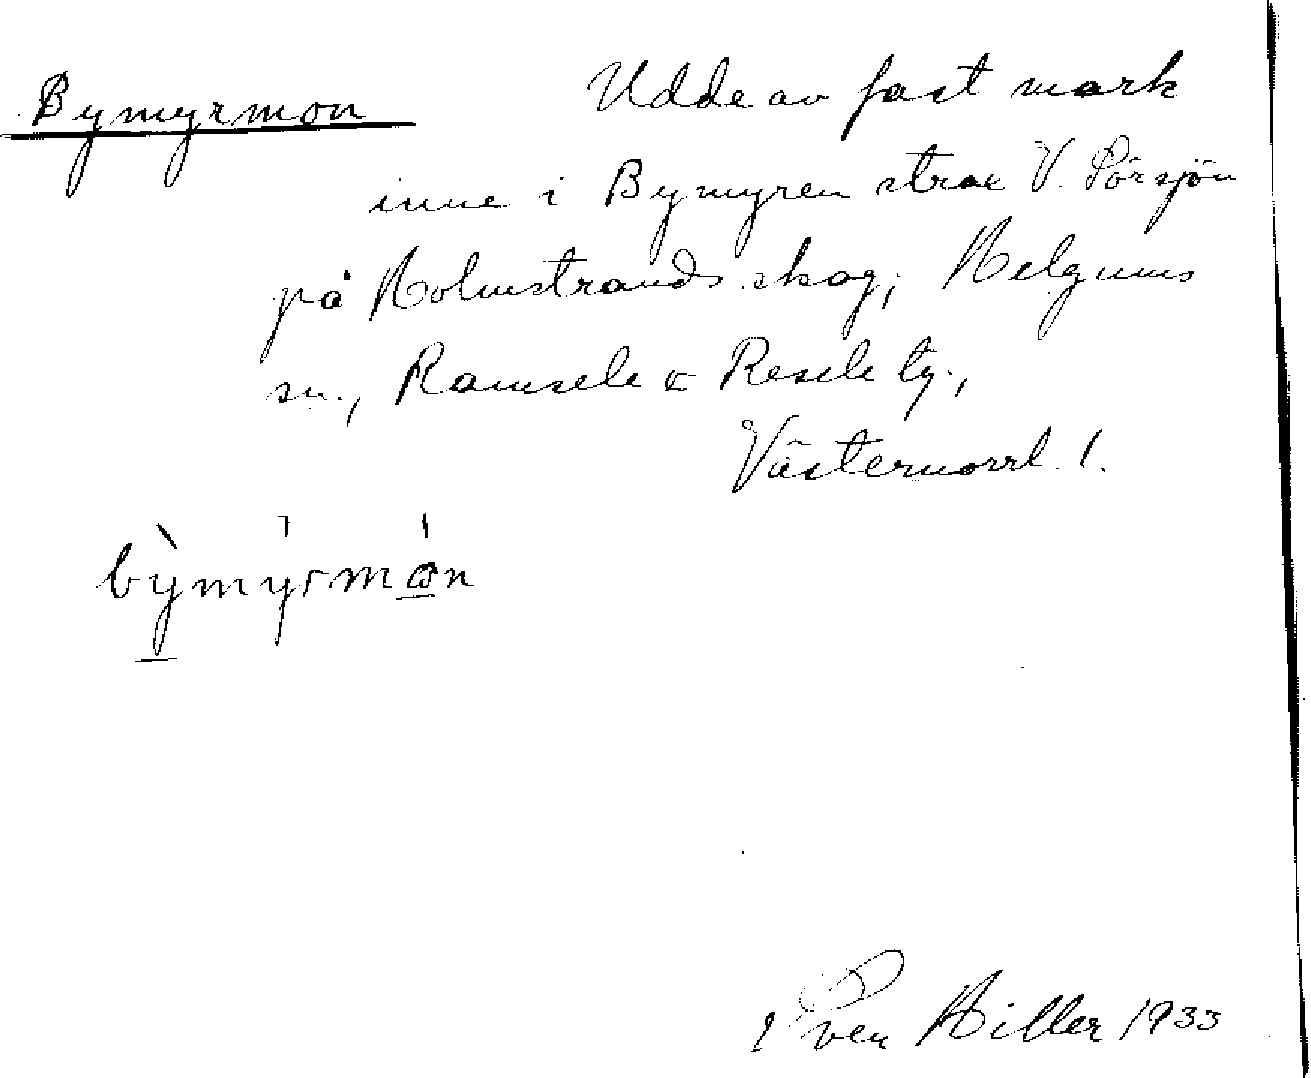 Bymyrmon Udde av fast mark
inne i Bymyren strax V. Pörsjön
på Holmstrands skog, Helgums
sn., Ramsele o Resele tg.,
Västernorrl. l.
bỳmy̍rmɷ̍n
Sven Hiller 1933